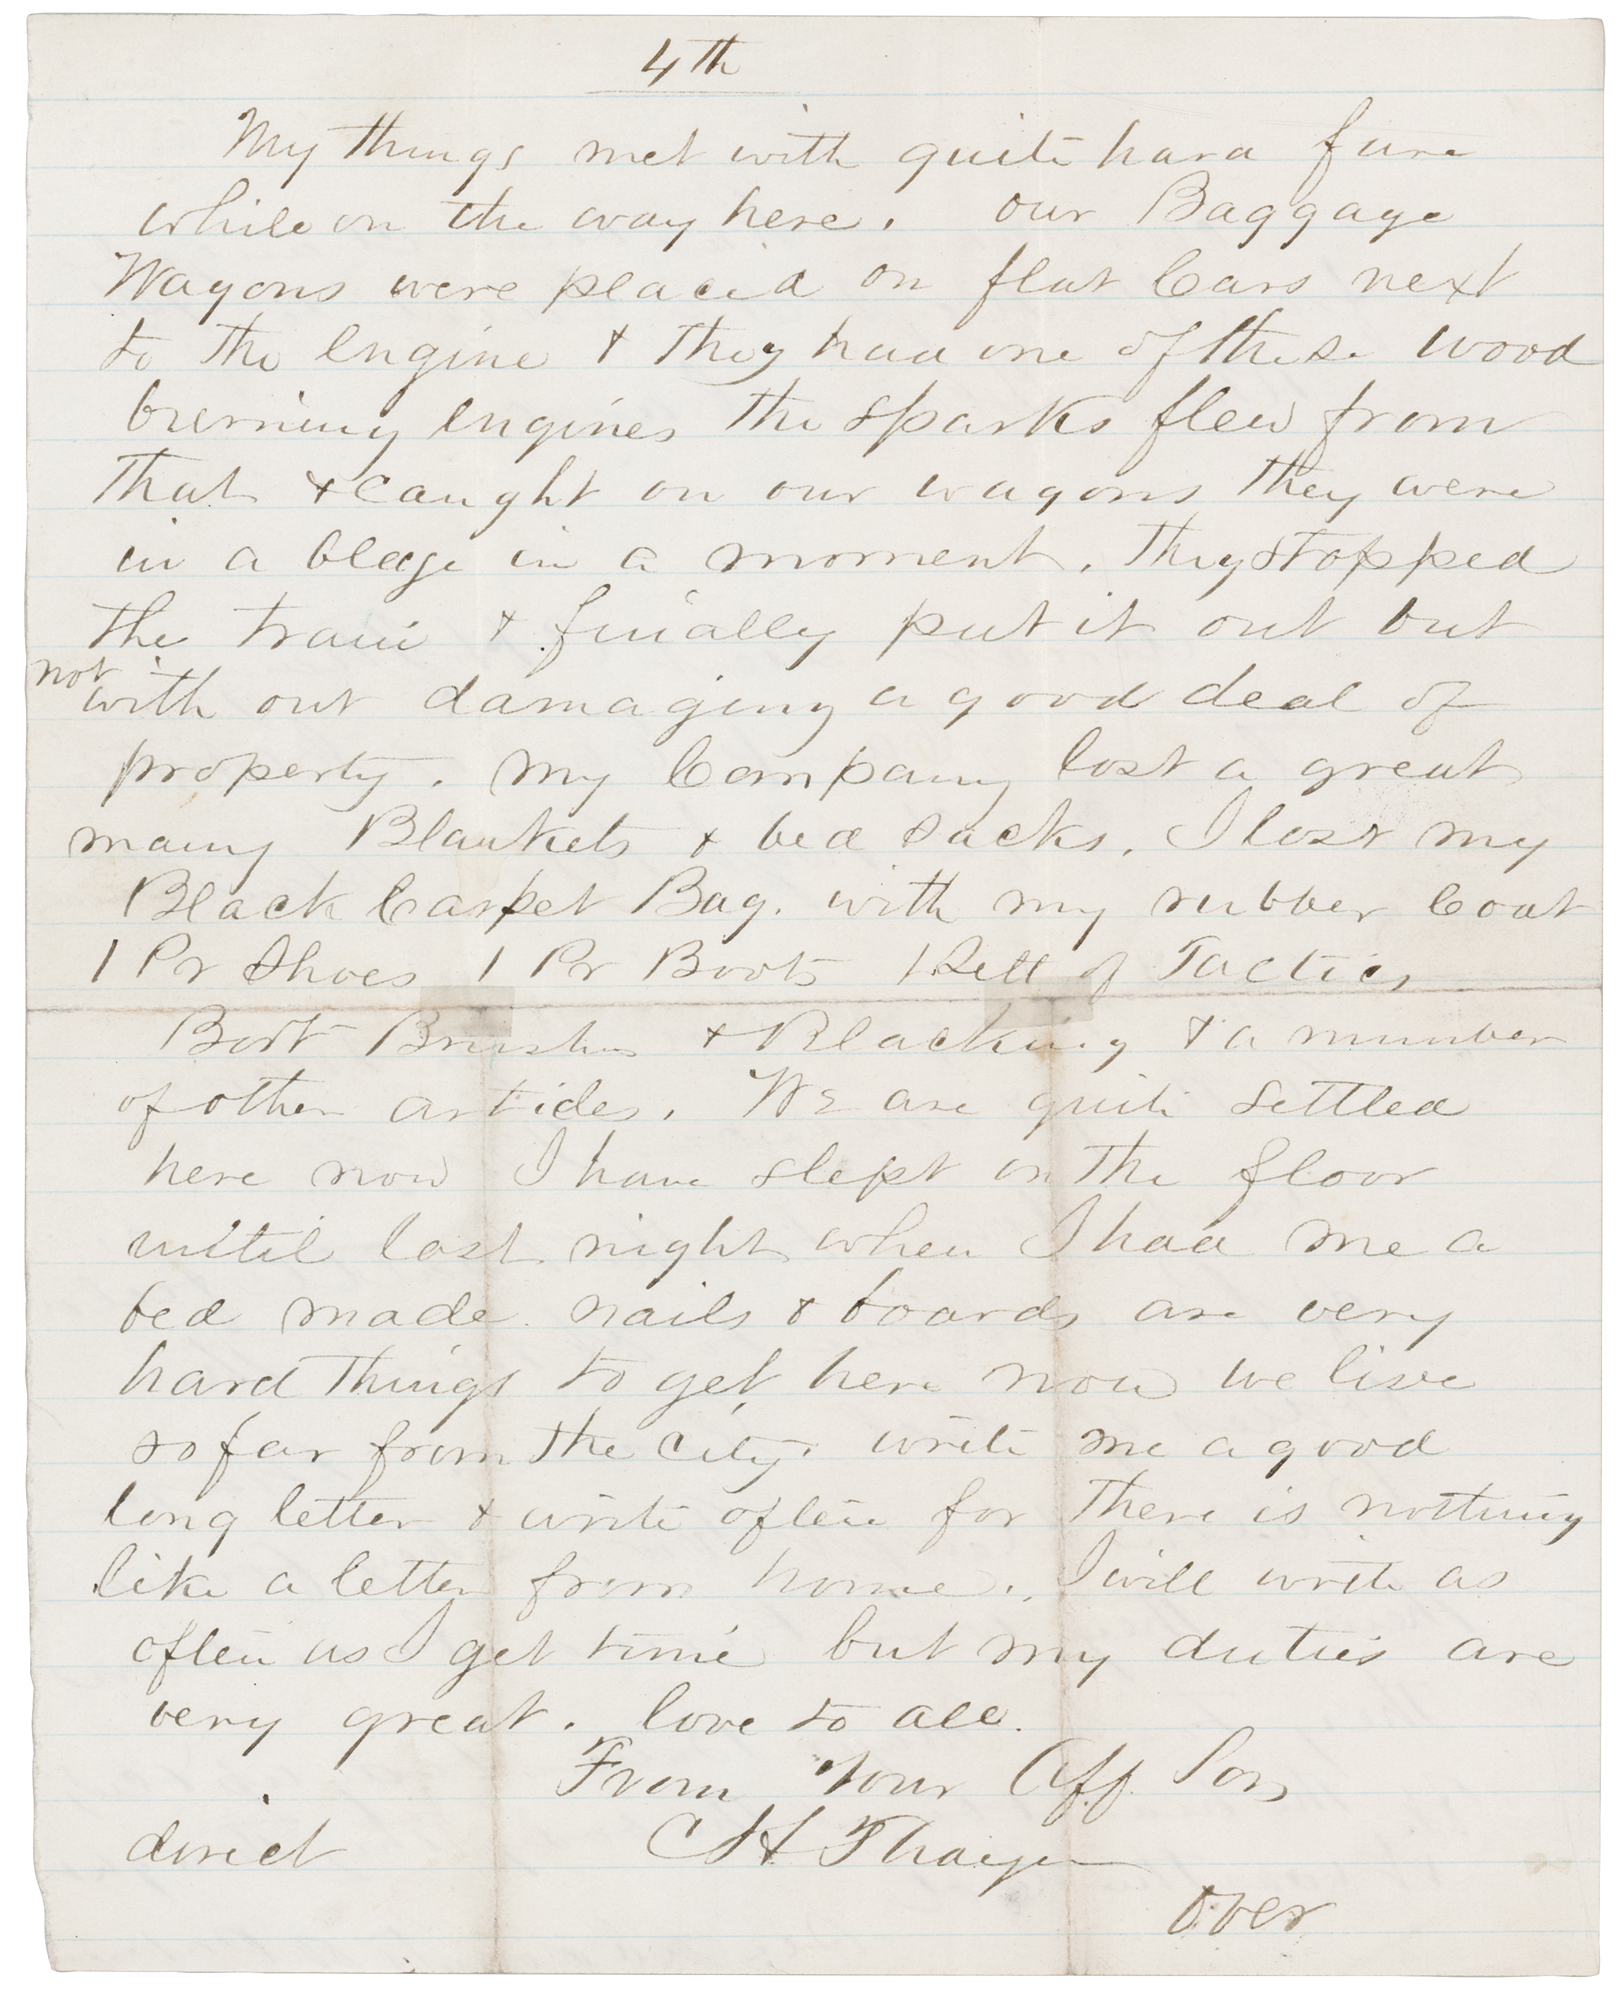 4th
My things met with quite hard fare
while on the way here. our Baggage
Wagons were placed on flat Cars next
to the Engine & they had one of these wood
burning engines the sparks flew from
that & caught on our wagons they were
in a blaze in a moment. They stopped
the train & finally put it out but
not with out damaging a good deal of
property. My Company lost a great
many Blankets & bed sacks. I lost my
Black Carpet Bag. with my rubber Coat
1 Pr Shoes 1 Pr Boots 1 Sett of Tactics
Boot Brushes & Blacking & a number
of other articles. We are quite settled
here now I have slept on the floor
until last night when I had me a
bed made. nails & boards are very
hard things to get here now we live
so far from the city. write me a good
long letter & write often for there is nothing
like a letter from home. I will write as
often as I get time but my duties are
very great. love to all.
From Your Aff. Son
direct C H Thayer
Over